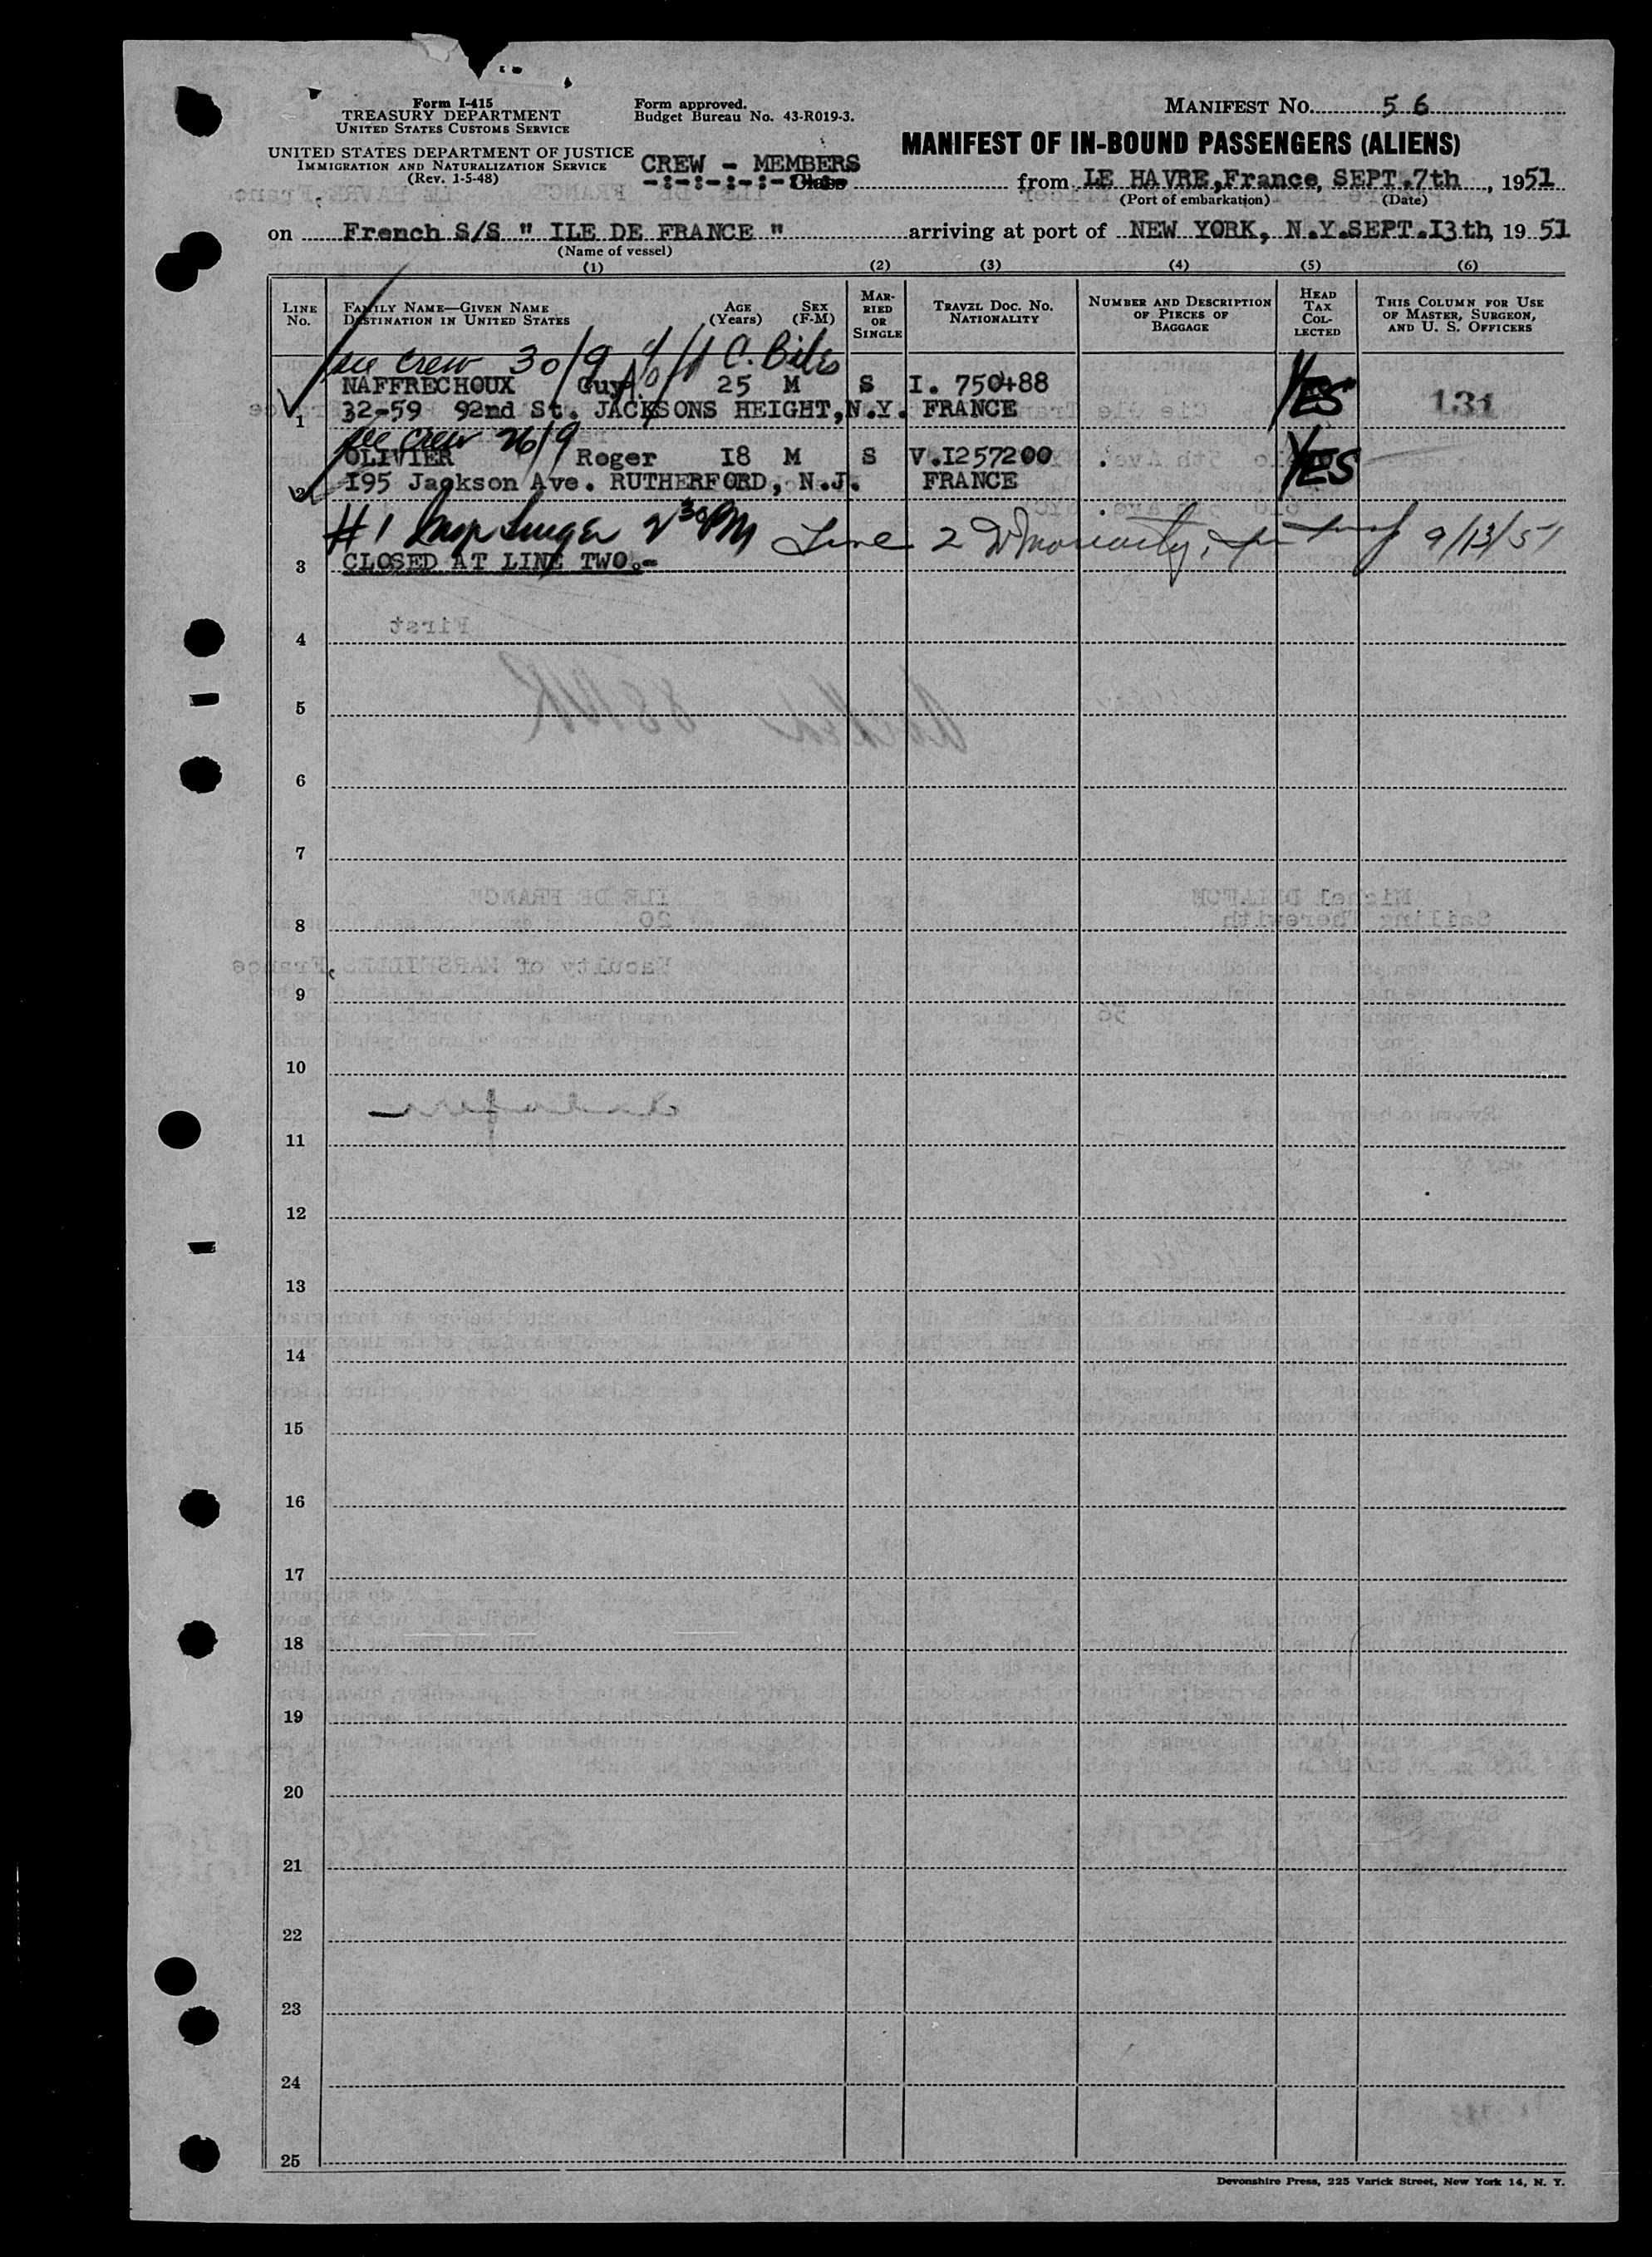 Form I-415
TREASURY DEPARTMENT
UNITED STATES CUSTOMS SERVICE
UNITED STATES DEPARTMENT OF JUSTICE
IMMIGRATION AND NATURALIZATION SERVICE
(Rev. 1-5-48)
Form approved.
Budget Bureau No. 43-R019-3.
MANIFEST NO. 56
MANIFEST OF IN-BOUND PASSENGERS (ALIENS)
CREW - MEMBERS
-:-:-:-:- Class from LE HAVRE, France, SEPT. 7th, 1951
(Port of embarkation) (Date)
on French S/S " ILE DE FRANCE " arriving at port of NEW YORK, N.Y. SEPT. I3th, 19 51
(Name of vessel)
(1) (2) (3) (4) (5) (6)
LINE No. FAMILY NAME—GIVEN NAME DESTINATION IN UNITED STATES AGE (Years) SEX (F-M) MARRIED OR SINGLE TRAVEL DOC. NO. NATIONALITY NUMBER AND DESCRIPTION OF PIECES OF BAGGAGE HEAD TAX COLLECTED THIS COLUMN FOR USE OF MASTER, SURGEON, AND U. S. OFFICERS
see crew 30/9
NAFFRECHOUX Guy 25 M S I. 750488 YES 131
1 32-59 92nd St. JACKSONS HEIGHT, N.Y. FRANCE
see crew 26/9
OLIVIER Roger I8 M S V.I257200 YES
2 I95 Jackson Ave. RUTHERFORD, N.J. FRANCE
#1 Line 2 9/13/51
3 CLOSED AT LINE TWO.-
4
5
6
7
8
9
10
11
12
13
14
15
16
17
18
19
20
21
22
23
24
25
Devonshire Press, 225 Varick Street, New York 14, N. Y.